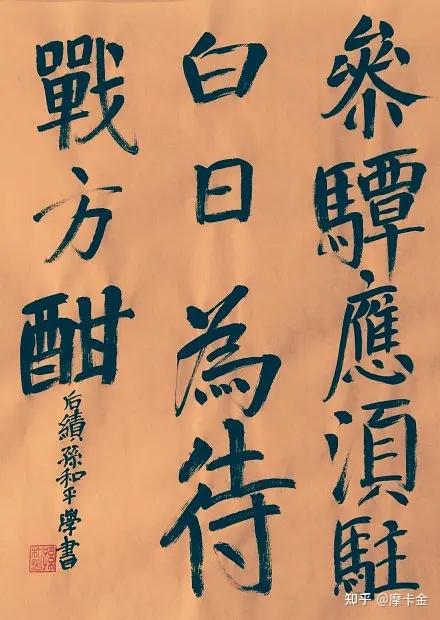 參驔應須駐
白日為待
戰方酣
后績孫和平學書
知乎 @摩卡金